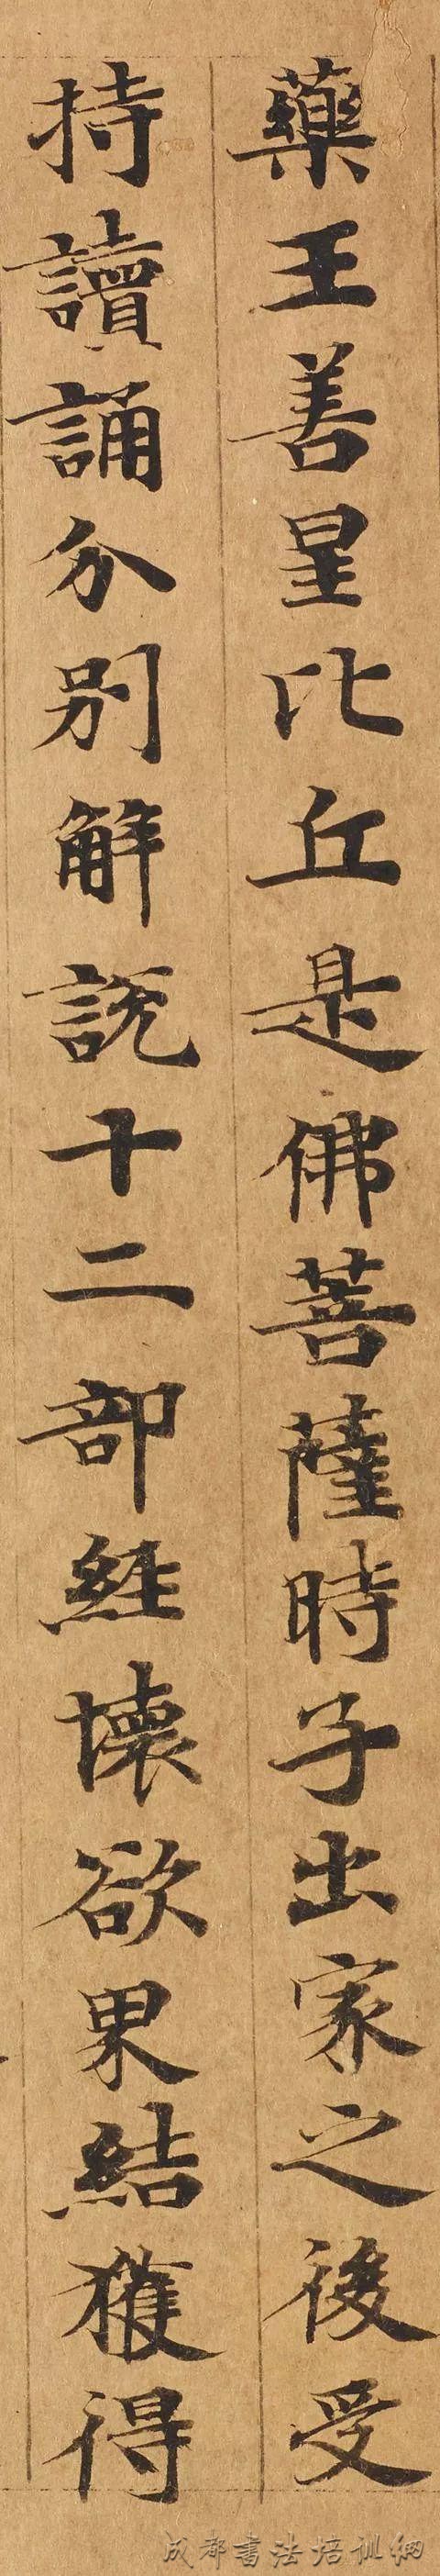 藥王善星比丘是佛菩薩時子出家之後受
持讀誦分別解說十二部經壞欲界結獲得
成都書法培训網